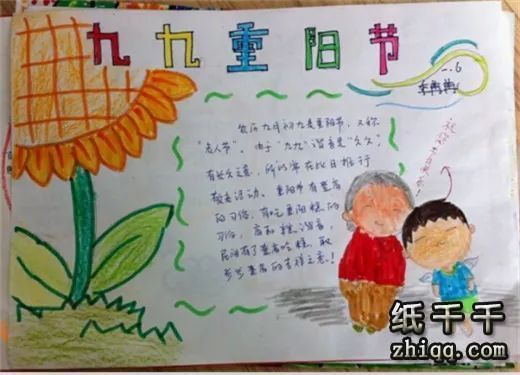 九九重阳节
二.6
农历九月初九是重阳节,又称
"老人节"。由于"九九"谐音是"久久",
有长久之意,所以常在此日推行
敬老活动。重阳节有登高
的习俗,有吃重阳糕的
习俗,高和糕谐音,
民间有了登高吃糕取
步步登高的吉祥之意!
纸干干
zhiqq.com